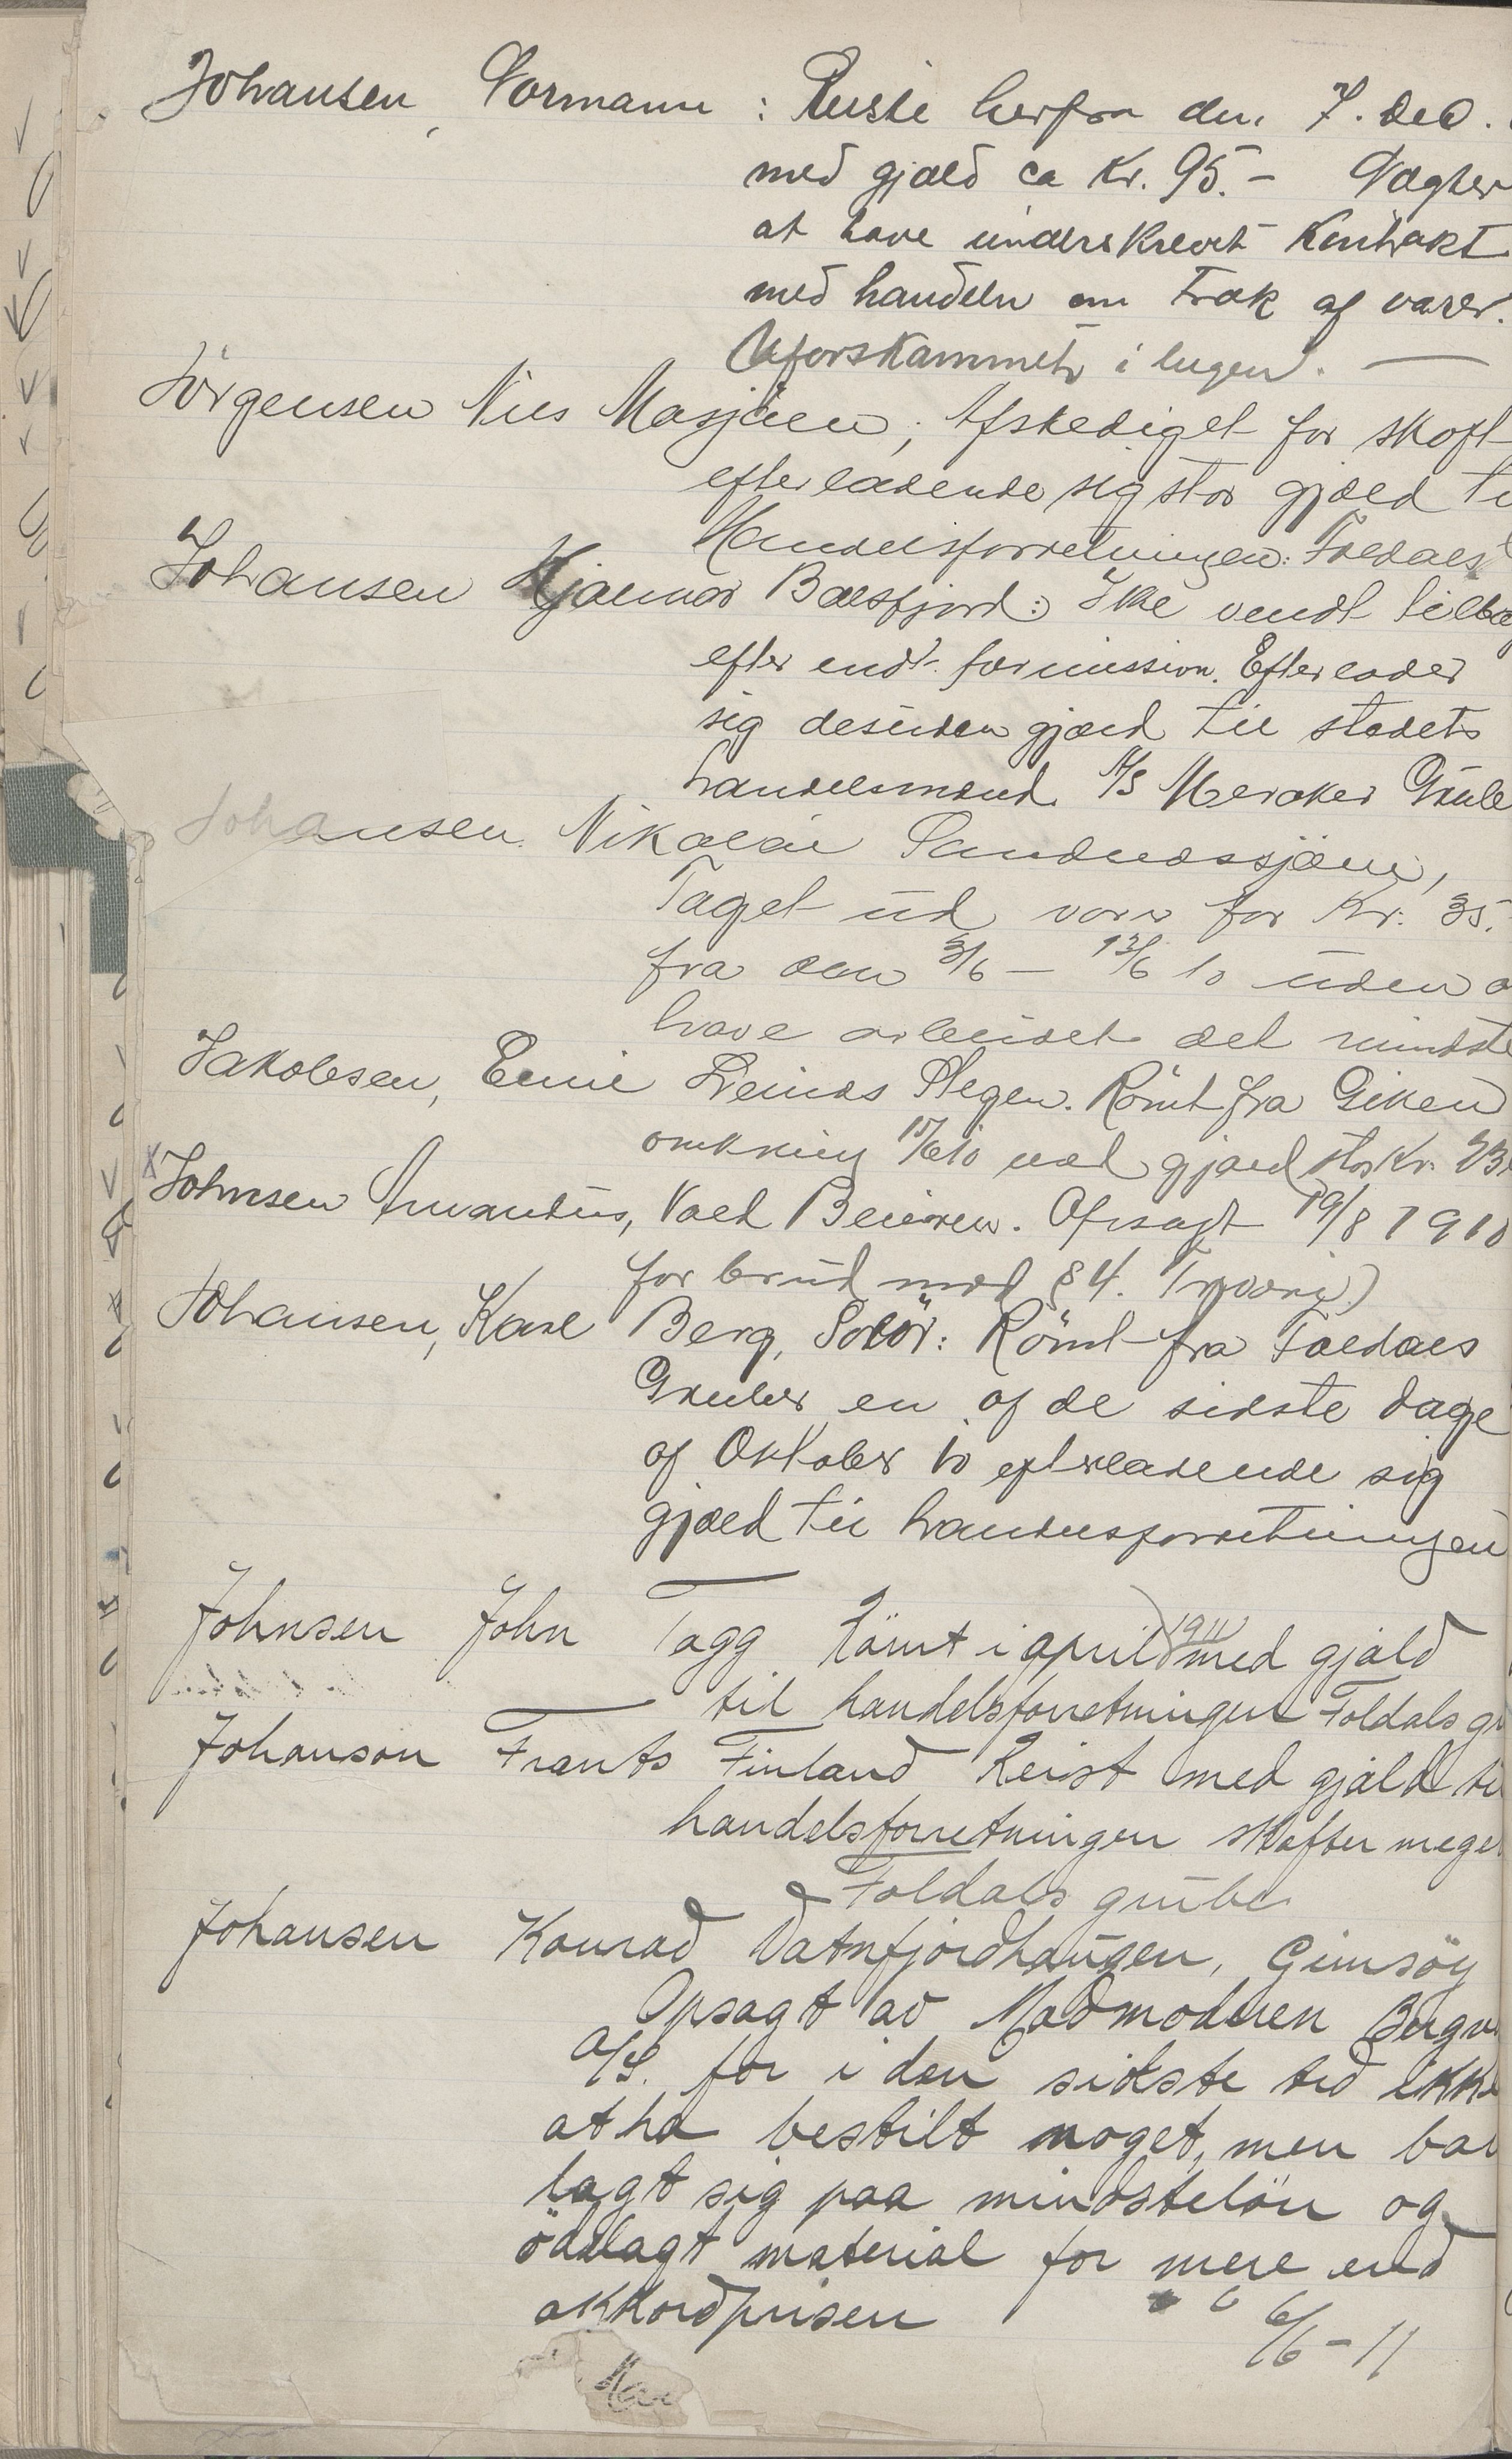 Johansen, Normann : Reiste herfra den 7. dec.
med gjæld ca Kr. 95.- Nægter
at have underskrevet Kontrakt
med handeln om Træk af varer.
Uforskammet i lugen. —
Jörgensen Nils Mosjöen; Afskediget for skoft
efterladende sig stor gjæld ti
Handelsforretningen: Foldals
Johansen Hjalmar Balsfjord: Ikke vendt tilba
efter endt permission. Efterlader
sig desuden gjæld til stedets
handelsmand. A/S Meraker Grube
Johansen. Nikolai Sandnessjöen,
Taget ud varer for Kr. 35.
fra den 3/6 — 13/6 10 uden a
have arbeidet det mindste
Jakobsen, Emil Leines Stegen. Römt fra Giken
omkring 15/6 10 med gjæld stor Kr. 23
x Johnsen Amandus, Vold Beieren. Opsagt 19/8 1910
for brud mod § 4. Tyveri)
Johansen, Karl Berg, Solör: Römt fra Foldals
Gruber en af de sidste dage
af Oktober 10 efterladende sig
gjæld til handelsforretningen
Johnsen John Tagg Römt i april 1911 med gjæld
til handelsforretningen Foldals gr
Johanson Frants Finland Reist med gjæld til
handelsforretningen skofter meget
Foldals grube
Johansen Konrad Vatnfjordhaugen, Gimsöy
Opsagt av Madmoderen Bergv
A/S. for i den sidste tid ikke
at ha bestilt noget, men bar
lagt sig paa mindstelön og
ödelagt material for mere end
akkordprisen 6/6 - 11